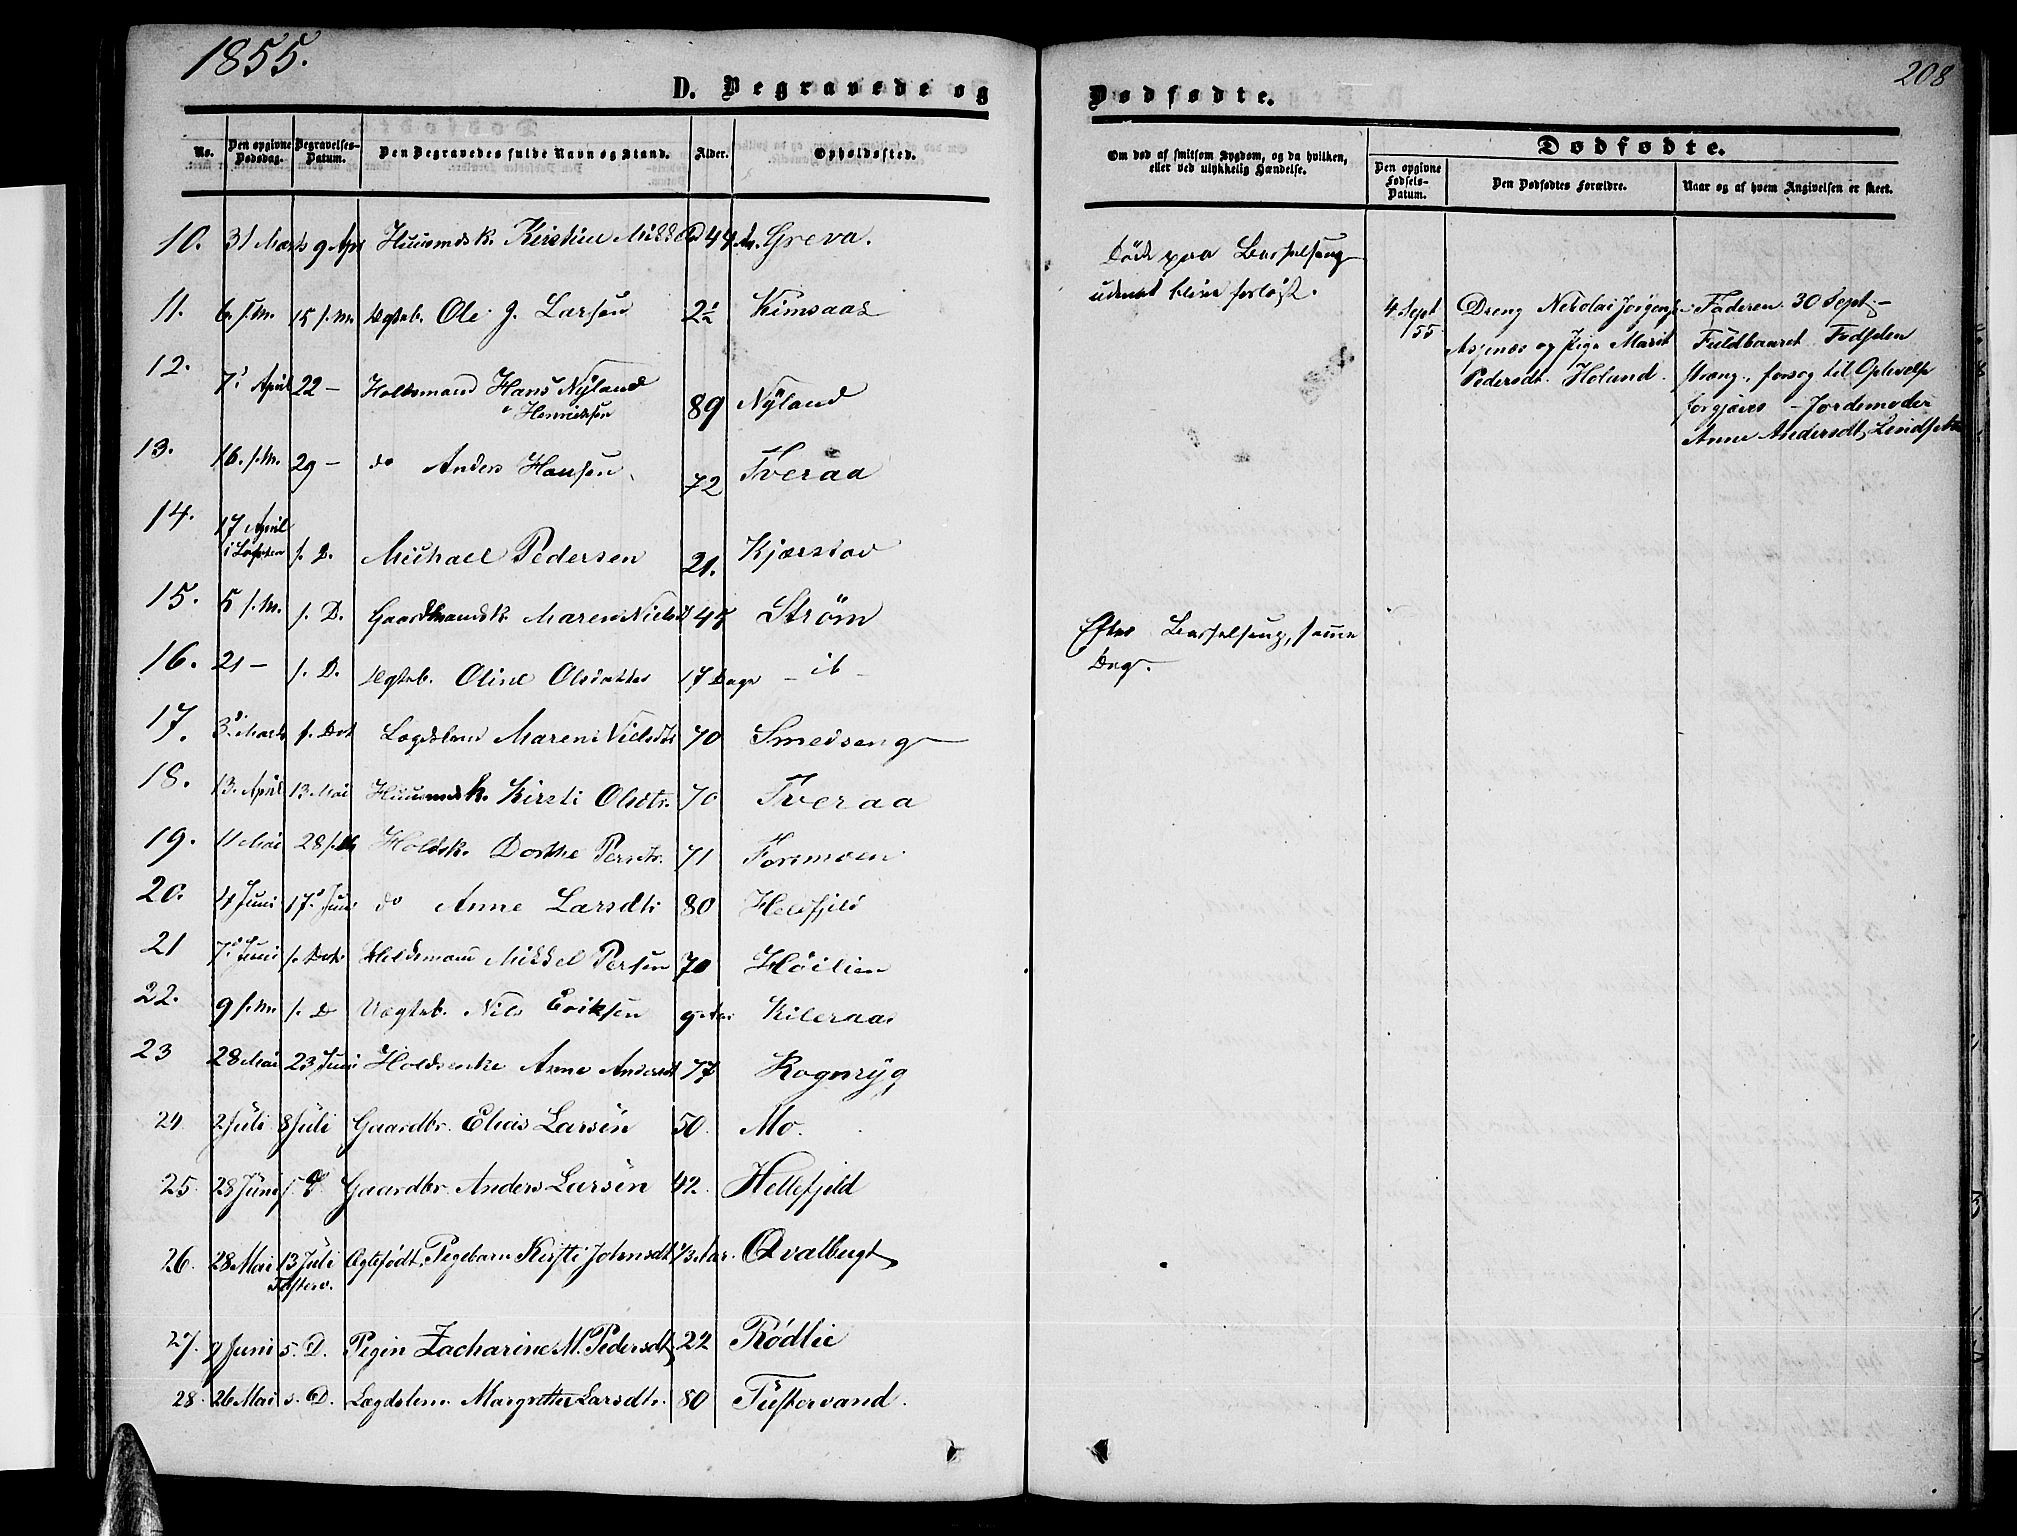 1855.
208
D. Begravede og Dødfødte.
No. Den opgivne Dødsdag. Begravelses-Datum. Den Begravedes fulde Navn og Stand. Alder. Opholdssted.
Om død af smitsom Sygdom, og da hvilken, eller ved ulykkelig Hændelse.
Dødfødte.
Den opgivne Fødsels-Datum. Den Dødfødtes Forældre. Naar og af hvem Angivelsen er skeet.
10. 31 Marts 9 Apr Huusmdsk. Kirstine 44 Greva.
Døde paa Barselseng
uden at blive forløst.
11. 6. s.M. 15 s.M. Ægteb. Ole J. Larsen 2½ Kimsaas
12. 7 April 22 - Holdsmand Hans Nÿland Henriksen 89 Nÿland
13. 16. s.M. 29 - do Anders Hansen 72 Tveraa
14. 17 April i Lofoten s. D. Michael Pedersen 21. Kjærstad
15. 5 s.M. s. D. Gaardmandsk. Maren Nielsd 45 Strøm
Efter Barselseng, samme
Dag.
16. 21 - s. D. Ægteb. Oline Olsdatter 17 Dage - it -
17. 3 Marts s. Dat Lægdslem Maren Nielsdt 70 Smedseng
18. 13. April 13 Mai Huusmdsk. Kirsti Olsdtr. 70 Tveraa
19. 11 Mai 28 s.M Holdsk. Dorthe Persdtr. 71 Forsmoen
20. 4 Juni 17 Juni do Anne Larsdtr 80 Hellfjeld
21 7 Juni s. Dat. Holdsmand Mikkel Persen 70 Høilien
22. 9 s.M. s. D Uægteb. Nils Eriksen 9 Kileraas
23 28 Mai 23 Juni Holdsenke Anne Andersdt 77 Rognrÿg
24. 2 Juli 8 Juli Gaardbr. Elias Larsen 50. Mo.
25. 28 Juni s. D Gaardbr. Anders Larsen 42. Hellefjeld
26. 28 Mai 13 Juli Tusterv. Ægtefødt Pigebarn Kirsti Johnsdt 1/3 Aar. Qvalbugt
27. 9 Juni s. D. Pigen Zacharine M. Pedersdt, 22 Rødlie
28. 26 Mai s. D. Lægdslem Margrethe Larsdtr. 80 Tustervand.
4 Sept 55
Dreng Nikolai Jørgens.
og Pige Marit
Pedersdt. Holand.
Faderen 30 Sept. -
Fuldbaaret. Fødselen
stræng, forsøg til Oplivelse
forgjæves - Jordemoder
Anne Andersdt, Lindset